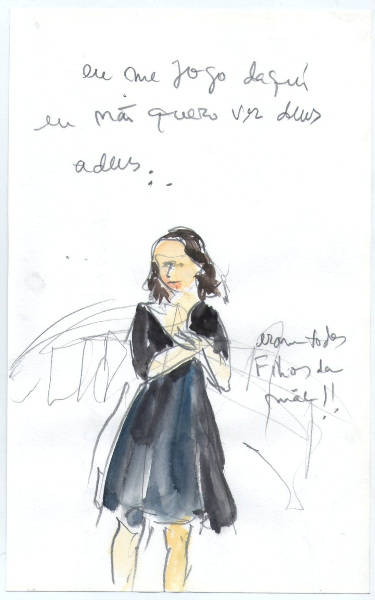 eu me jogo daqui
eu não quero ver deus
adeus...
eram todos
Filhos da
mãe!!